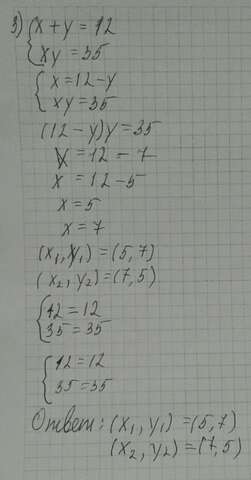 3) { x + y = 12
{ xy = 35
{ x = 12 - y
{ xy = 35
(12 - y)y = 35
x = 12 - 7
x = 12 - 5
x = 5
x = 7
(x₁, y₁) = (5, 7)
(x₂, y₂) = (7, 5)
{ 12 = 12
{ 35 = 35
{ 12 = 12
{ 35 = 35
Ответ: (x₁, y₁) = (5, 7)
(x₂, y₂) = (7, 5)